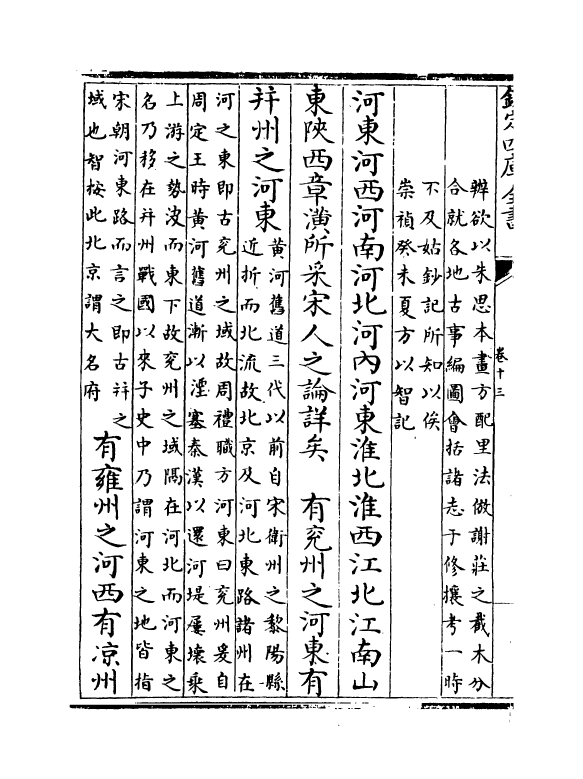 欽定四庫全書
卷十三
辨欲以朱思本畫方配里法倣謝莊之截木分
合就各地古事編圖會括諸志于修攘考一時
不及姑鈔記所知以俟
崇禎癸未夏方以智記
河東河西河南河北河內河東淮北淮西江北江南山
東陜西章潢所采宋人之論詳矣 有兖州之河東有
幷州之河東黄河舊道三代以前自宋衛州之黎陽縣
近折而北流故北京及河北東路諸州在
河之東即古兖州之域故周禮職方河東曰兖州爰自
周定王時黄河舊道漸以湮塞秦漢以還河堤屢壞乘
上游之勢决而東下故兖州之域隅在河北而河東之
名乃移在幷州戰國以來子史中乃謂河東之地皆指
宋朝河東路而言之即古幷之
域也智按此北京謂大名府
有雍州之河西有凉州